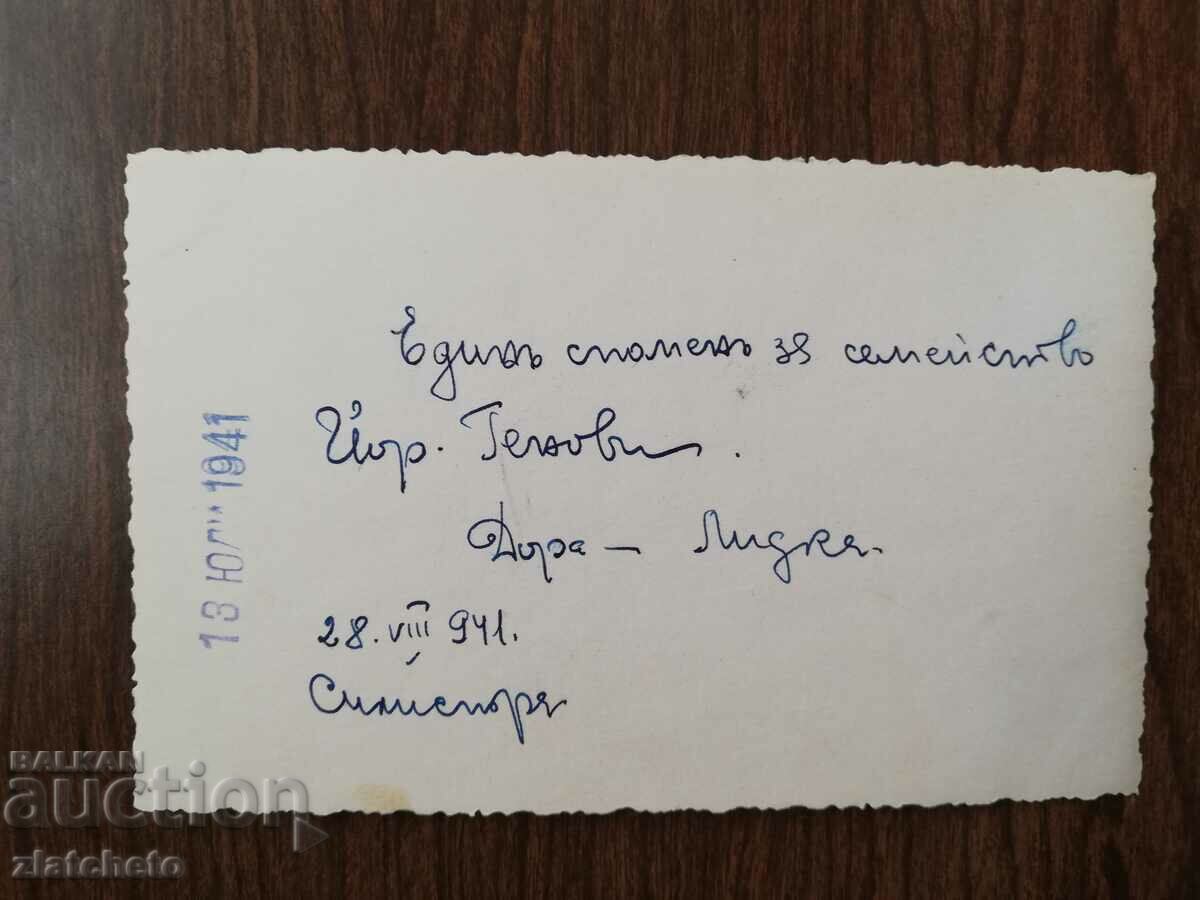 Единъ споменъ за семейство
Йор. Генови.
Дора – Лидка.
28.VIII 941.
Силистра
13 ЮЛИ 1941
BALKAN
auction
zlatcheto